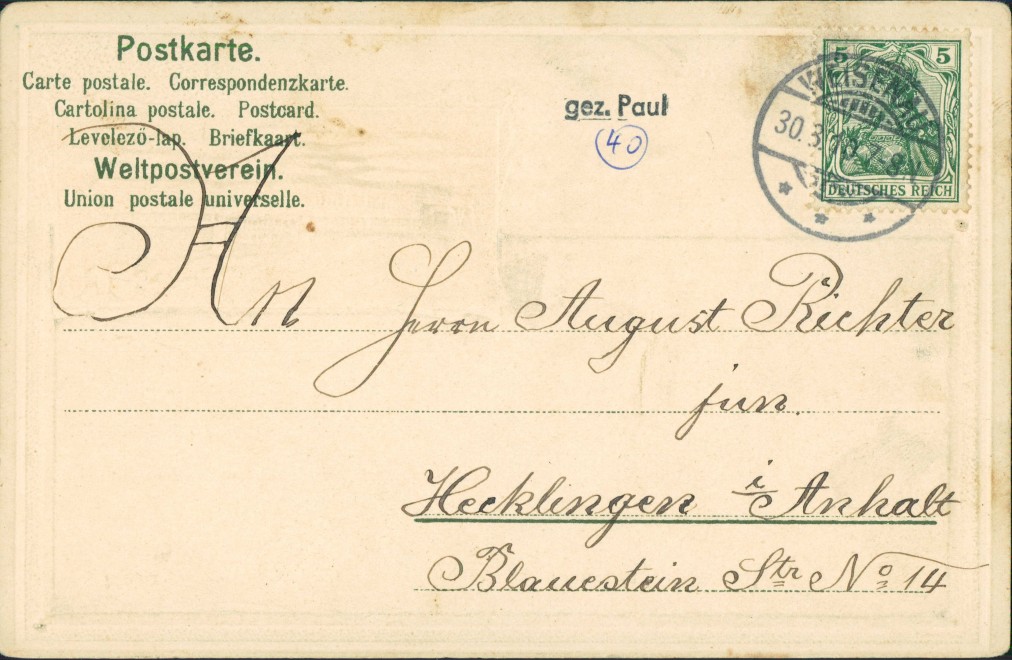 Postkarte.
Carte postale. Correspondenzkarte.
Cartolina postale. Postcard.
Levelezö-lap. Briefkaart.
Weltpostverein.
Union postale universelle.
gez. Paul
40
5 5
DEUTSCHES REICH
30.3.
An Herrn August Richter
jun.
Hecklingen i/Anhalt
Blauestein Str No 14